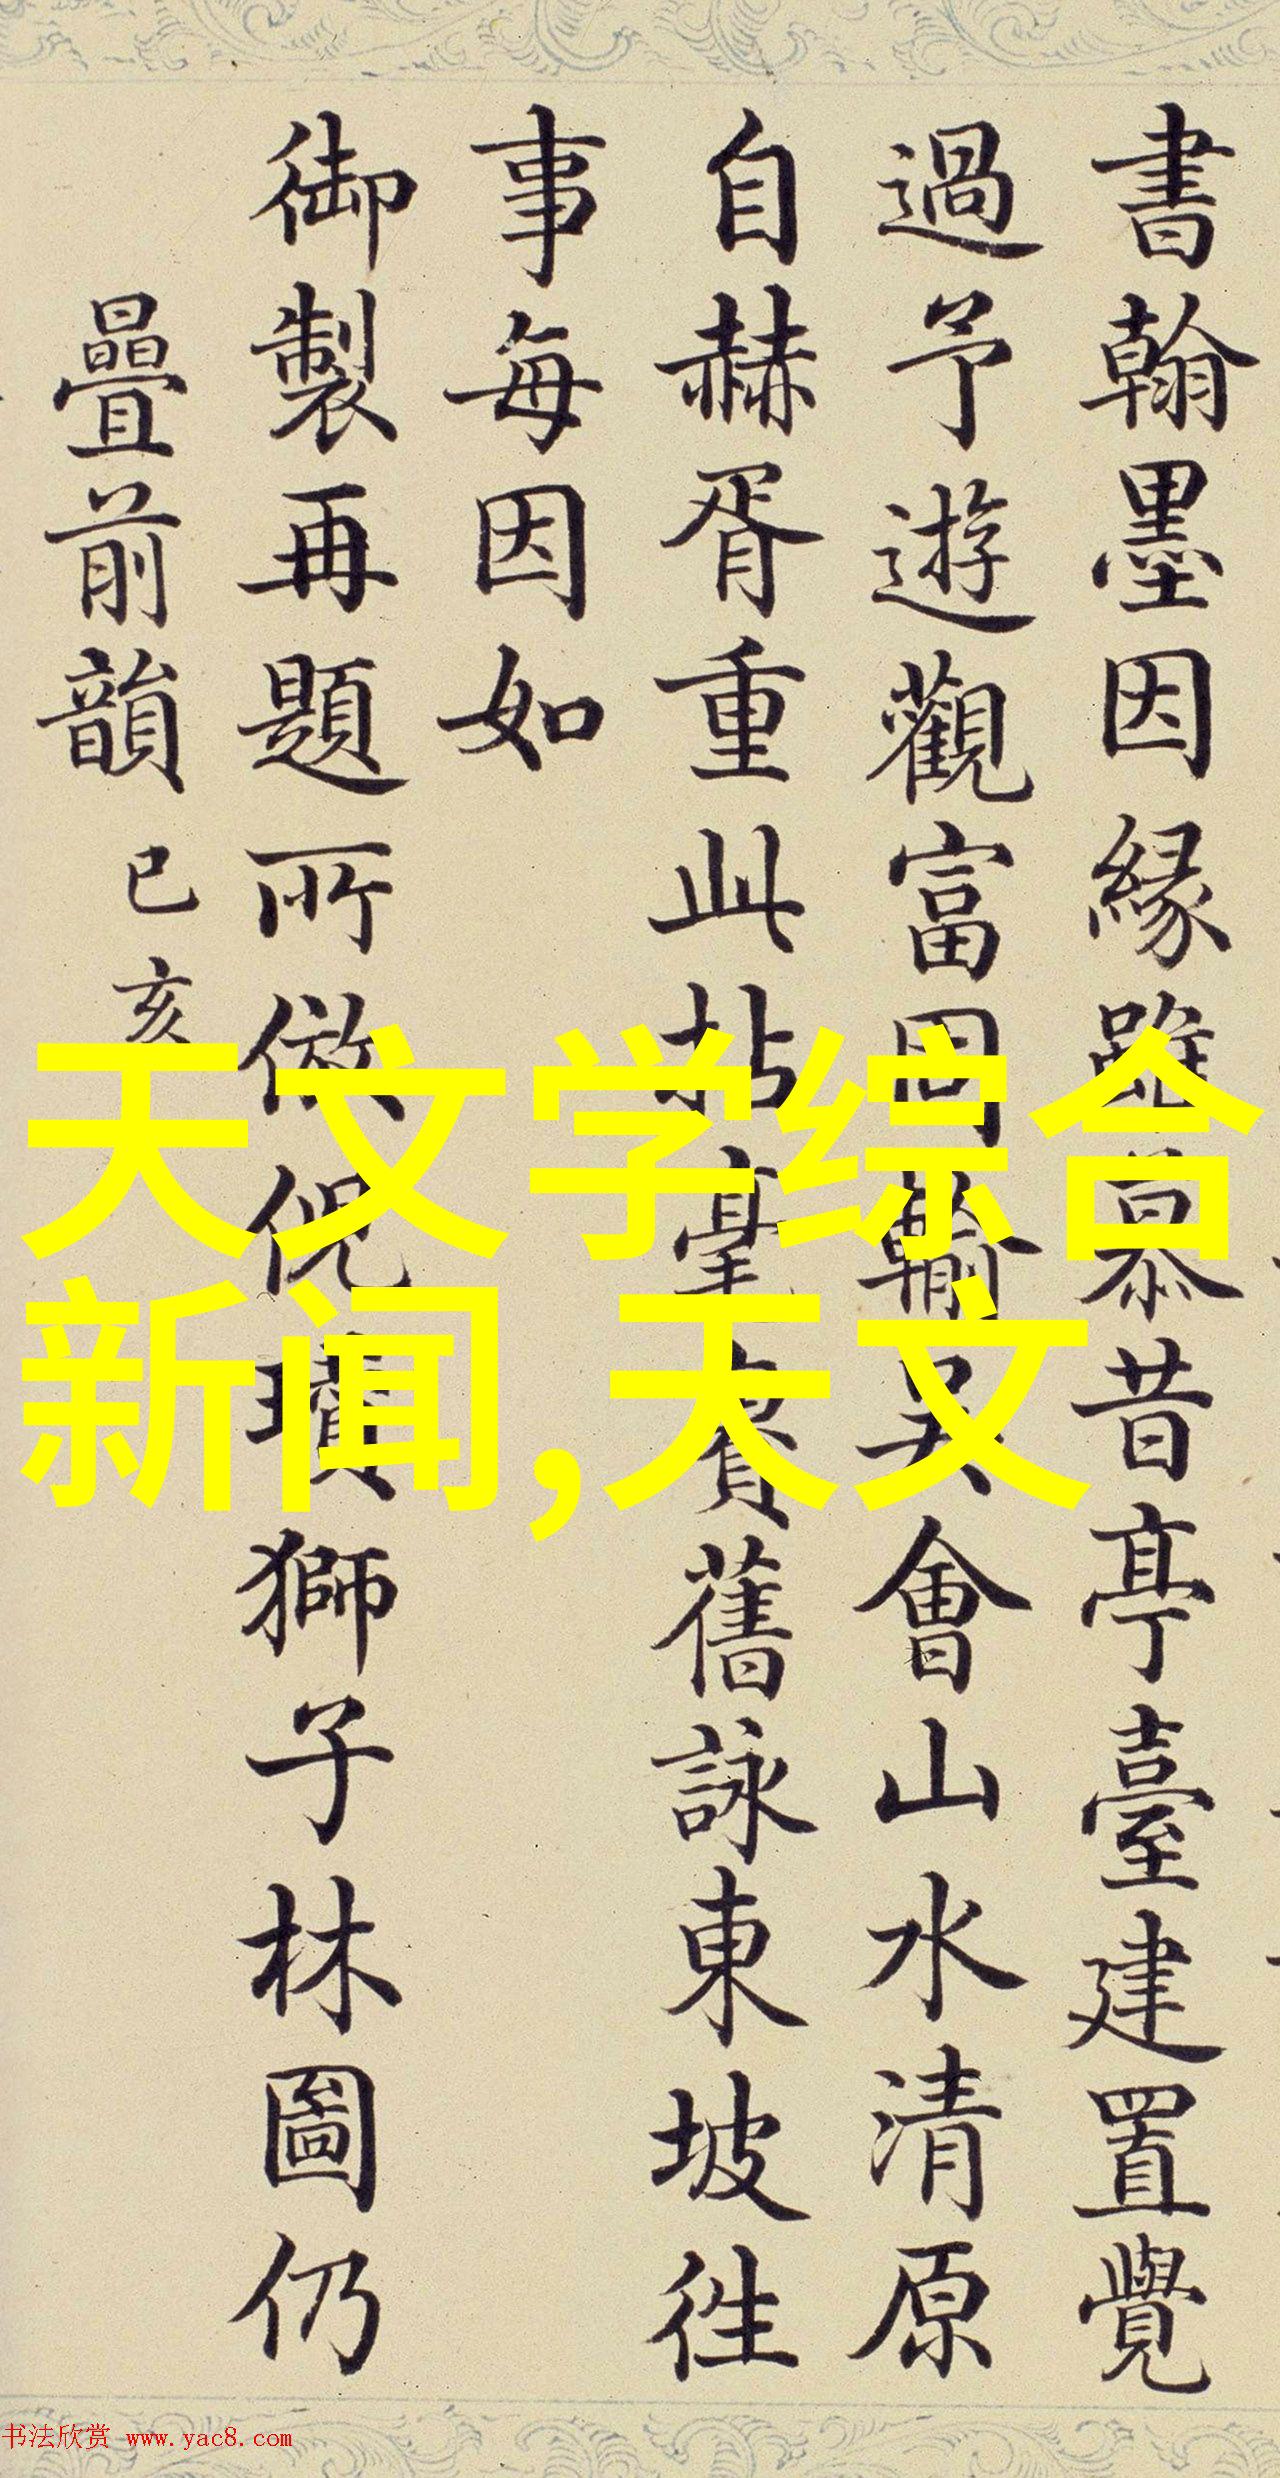 書翰墨因緣雖慕昔亭臺建置覺
過予遊觀富周輸吳會山水清原
自赫胥重此拈毫賡舊詠東坡往
事每因如
御製再題所倣倪瓚獅子林圖仍
疊前韻己亥
天文学综合
新闻,天文
书法欣赏 www.yac8.com